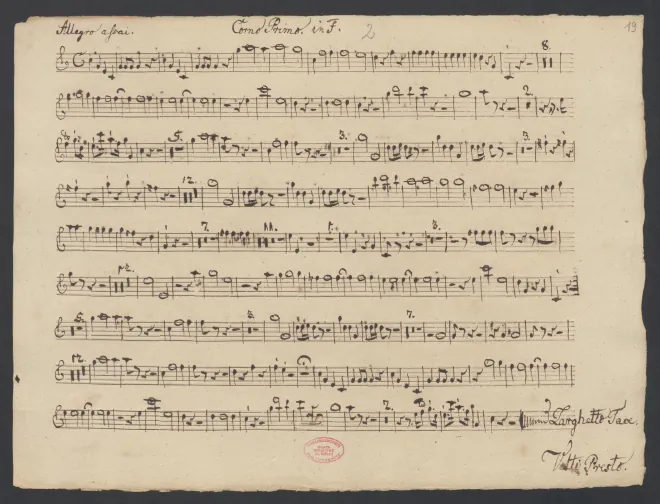 Allegro assai. Corno Primo. in F. 2 19
8.
2.
5. 3. 3.
12.
7. 3.
12.
5. 8. 7.
12.
2. Larghetto Tace.
Volti Presto.